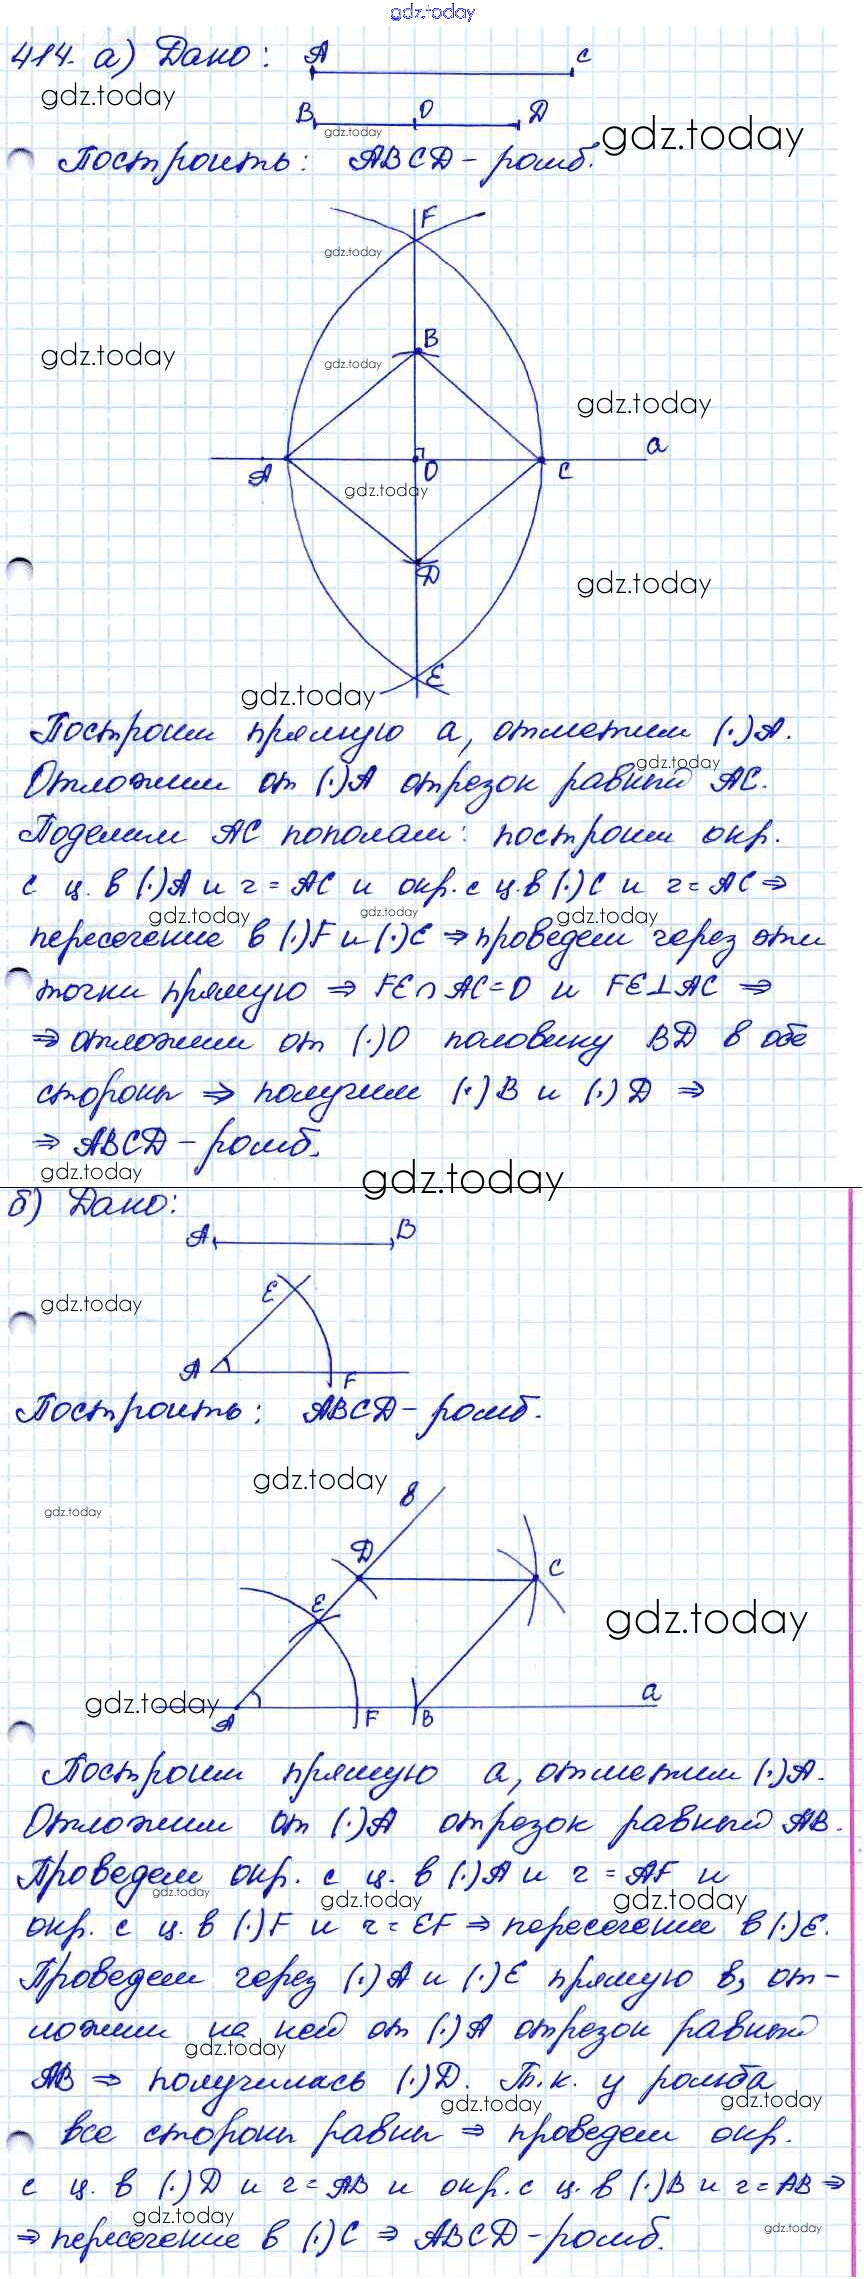 gdz.today
414. а) Дано: A C
gdz.today
B O D
gdz.today
gdz.today
Построить: ABCD - ромб.
F
gdz.today
B
gdz.today
gdz.today
gdz.today
a
A O C
gdz.today
D
gdz.today
E
gdz.today
Построим прямую a, отметим (·)A.
gdz.today
Отложим от (·)A отрезок равный AC.
Поделим AC пополам: построим окр.
с ц. в (·)A и r = AC и окр. с ц. в (·)C и r = AC ⇒
gdz.today gdz.today gdz.today
пересечение в (·)F и (·)E ⇒ проведем через эти
точки прямую ⇒ FE∩AC=O и FE⊥AC ⇒
⇒ отложим от (·)O половину BD в обе
стороны ⇒ получим (·)B и (·)D ⇒
⇒ ABCD - ромб.
gdz.today gdz.today
б) Дано:
A B
E
gdz.today
A F
Построить: ABCD - ромб.
gdz.today
gdz.today
в
D C
E
gdz.today
gdz.today
a
A F B
Построим прямую a, отметим (·)A.
Отложим от (·)A отрезок равный AB.
Проведем окр. с ц. в (·)A и r = AF и
gdz.today gdz.today gdz.today
окр. с ц. в (·)F и r = EF ⇒ пересечение в (·)E.
Проведем через (·)A и (·)E прямую в, от-
ложим на ней от (·)A отрезок равный
gdz.today
AB ⇒ получилась (·)D. Т.к. у ромба
gdz.today gdz.today
все стороны равны ⇒ проведем окр.
с ц. в (·)D и r = AB и окр. с ц. в (·)B и r = AB ⇒
gdz.today gdz.today
⇒ пересечение в (·)C ⇒ ABCD - ромб.